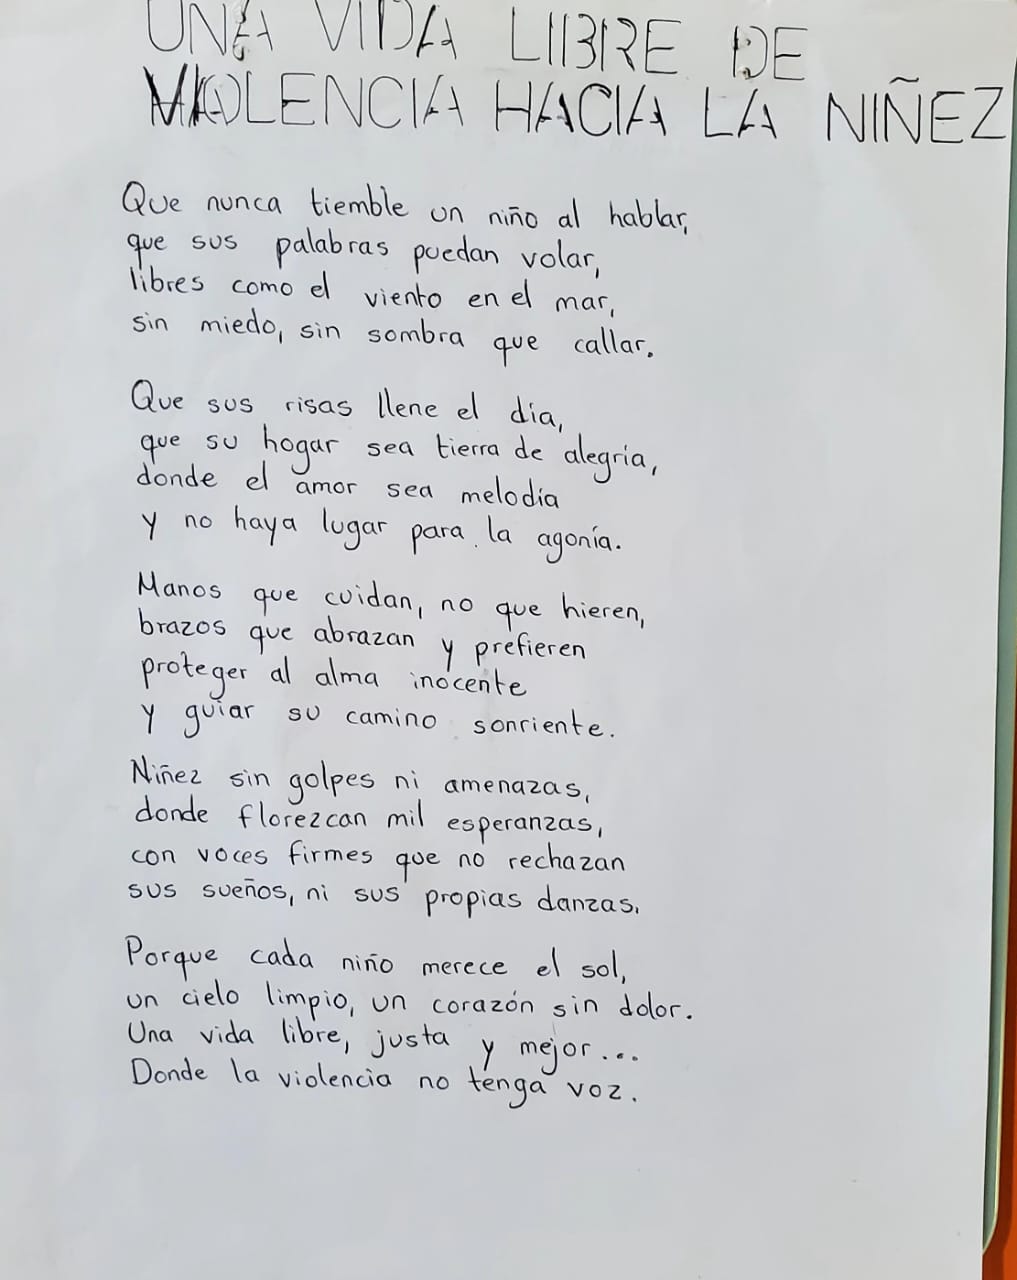 UNA VIDA LIBRE DE
VIOLENCIA HACIA LA NIÑEZ
Que nunca tiemble un niño al hablar,
que sus palabras puedan volar,
libres como el viento en el mar,
sin miedo, sin sombra que callar.
Que sus risas llene el día,
que su hogar sea tierra de alegría,
donde el amor sea melodía
y no haya lugar para la agonía.
Manos que cuidan, no que hieren,
brazos que abrazan y prefieren
proteger al alma inocente
y guiar su camino sonriente.
Niñez sin golpes ni amenazas,
donde florezcan mil esperanzas,
con voces firmes que no rechazan
sus sueños, ni sus propias danzas.
Porque cada niño merece el sol,
un cielo limpio, un corazón sin dolor.
Una vida libre, justa y mejor...
Donde la violencia no tenga voz.